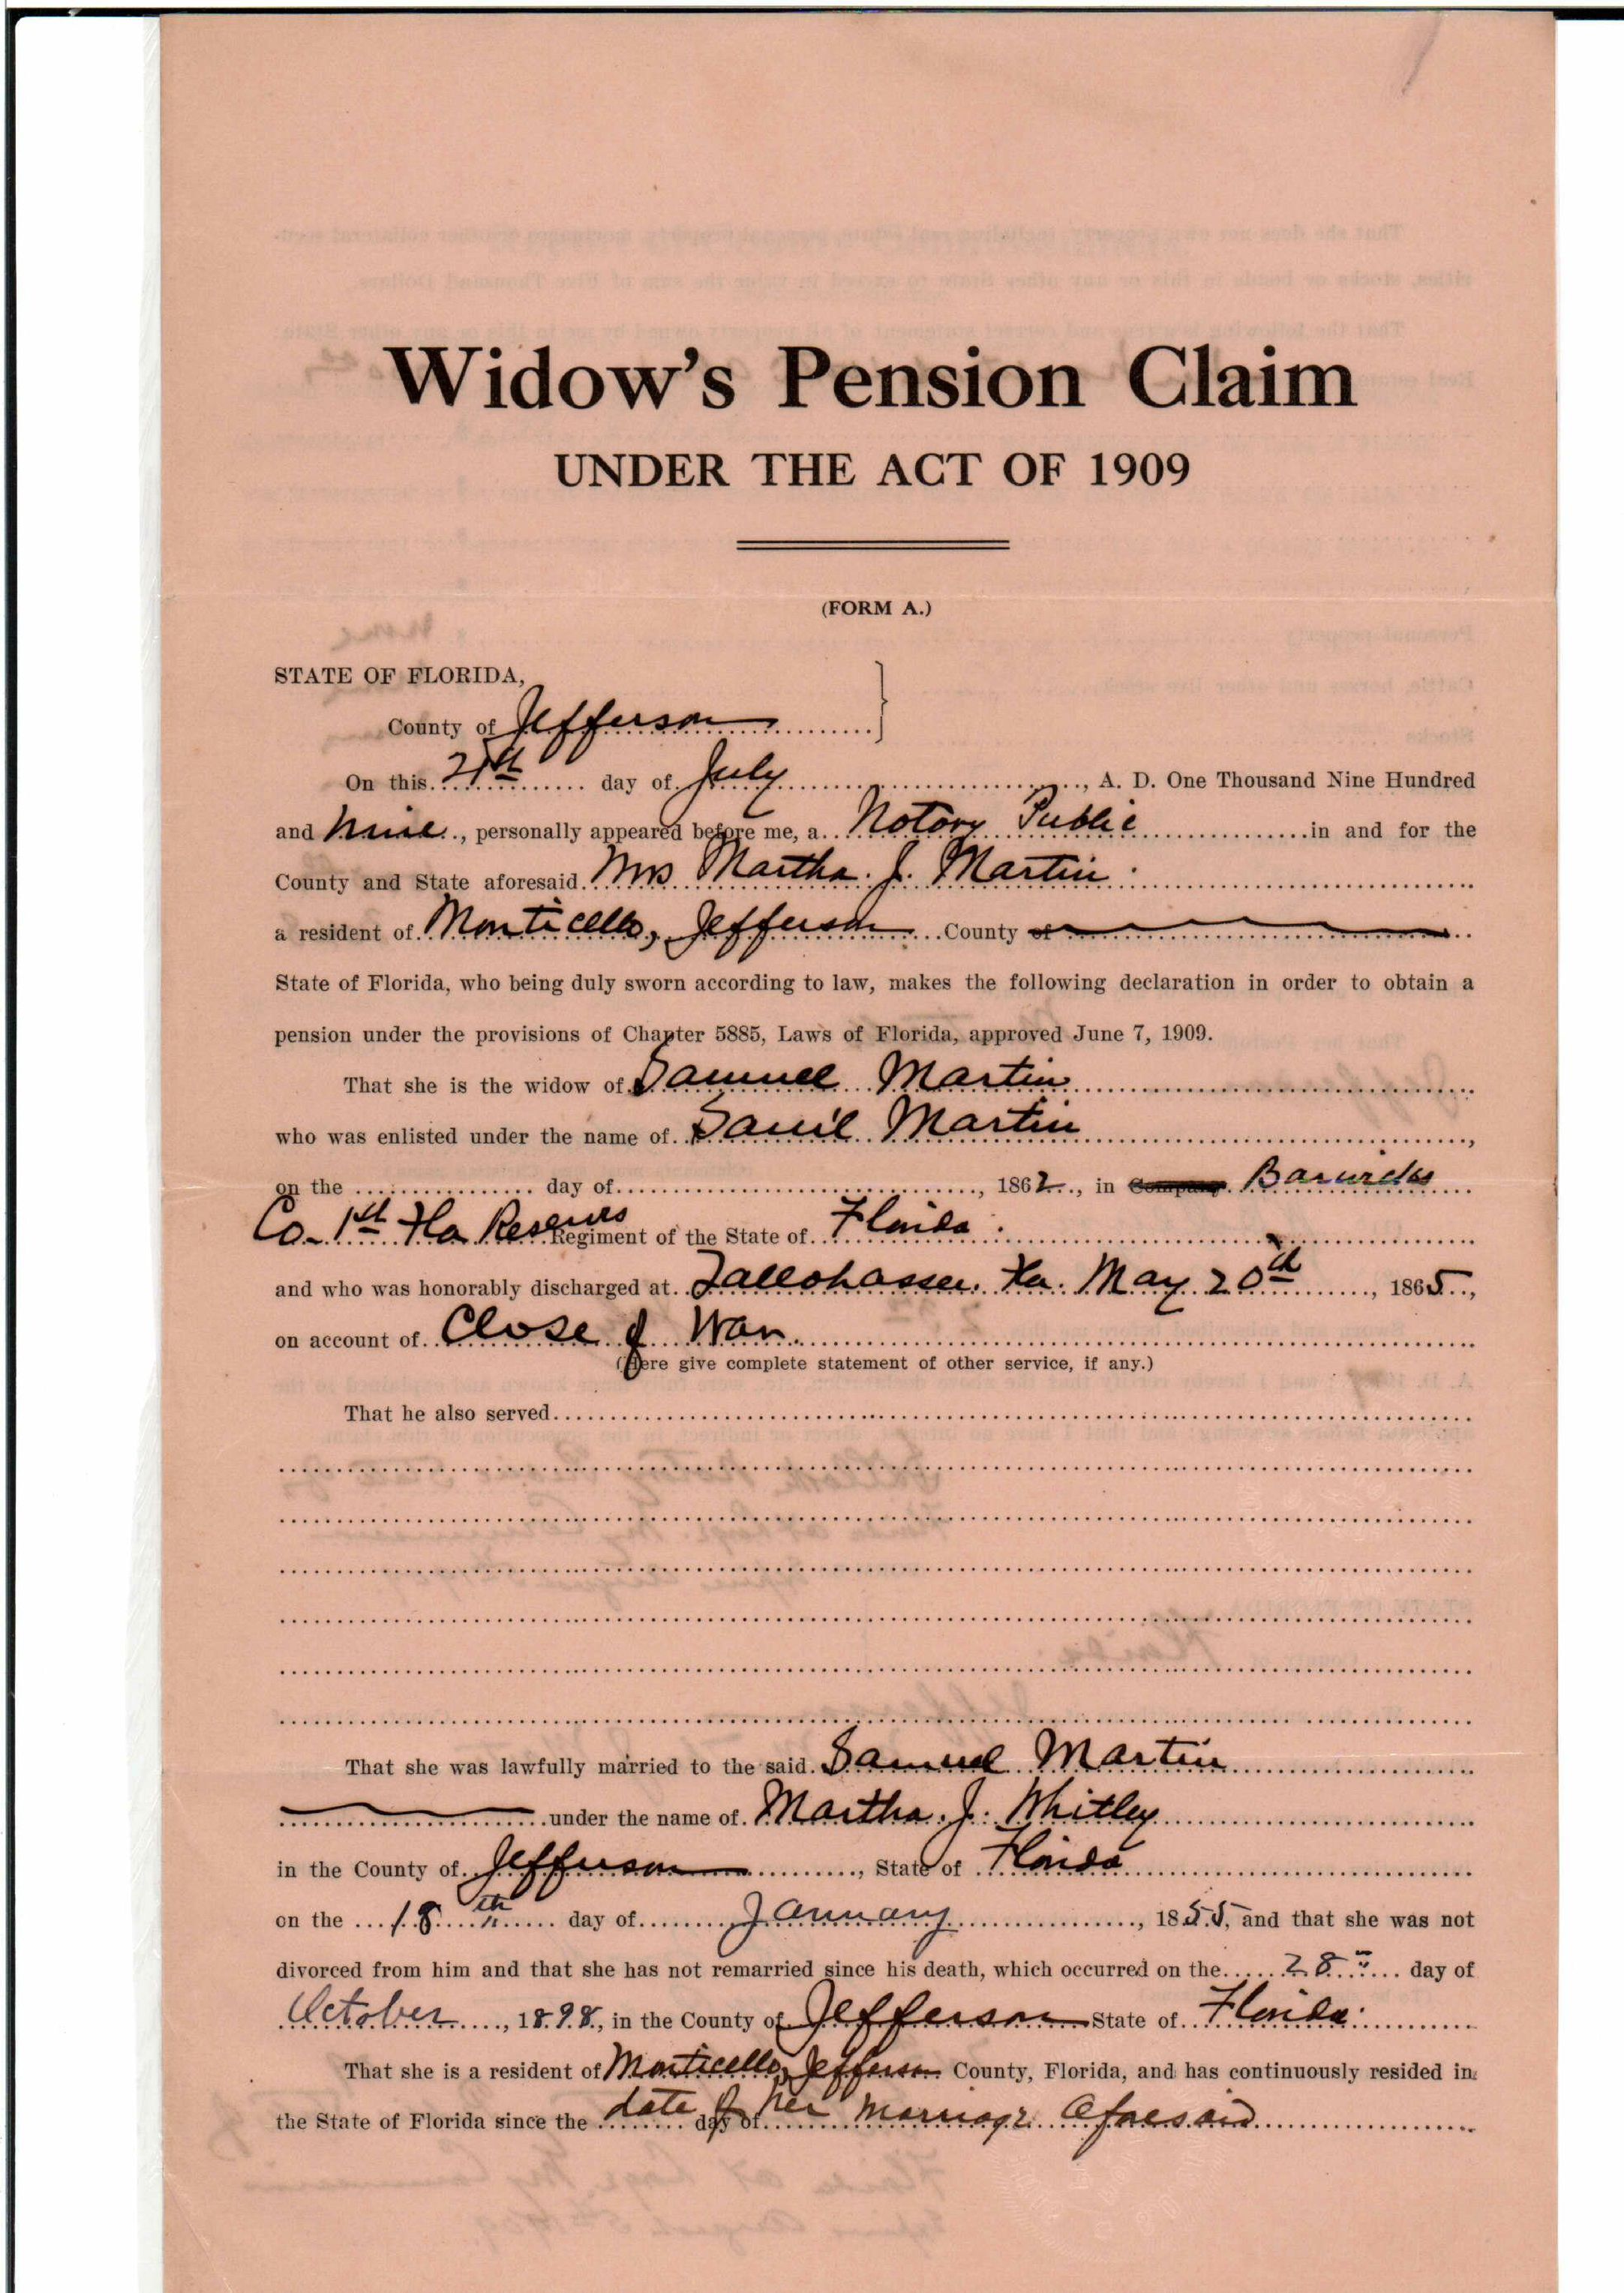 Widow's Pension Claim
UNDER THE ACT OF 1909
(FORM A.)
STATE OF FLORIDA,
County of Jefferson
On this 21st day of July, A. D. One Thousand Nine Hundred
and nine, personally appeared before me, a Notary Public in and for the
County and State aforesaid Mrs Martha. J. Martin
a resident of Monticello, Jefferson County of
State of Florida, who being duly sworn according to law, makes the following declaration in order to obtain a
pension under the provisions of Chapter 5885, Laws of Florida, approved June 7, 1909.
That she is the widow of Samuel Martin
who was enlisted under the name of Sam'l Martin
on the day of, 1862, in Company Barwicks
Co. 1st Fla Reserves Regiment of the State of Florida.
and who was honorably discharged at Tallahassee, Fla. May 20th, 1865,
on account of Close of War.
(Here give complete statement of other service, if any.)
That he also served
That she was lawfully married to the said Samuel Martin
under the name of Martha. J. Whitley
in the County of Jefferson, State of Florida
on the 18th day of January, 1855, and that she was not
divorced from him and that she has not remarried since his death, which occurred on the 28" day of
October, 1898, in the County of Jefferson State of Florida.
That she is a resident of Monticello, Jefferson County, Florida, and has continuously resided in
the State of Florida since the date of day of her marriage aforesaid